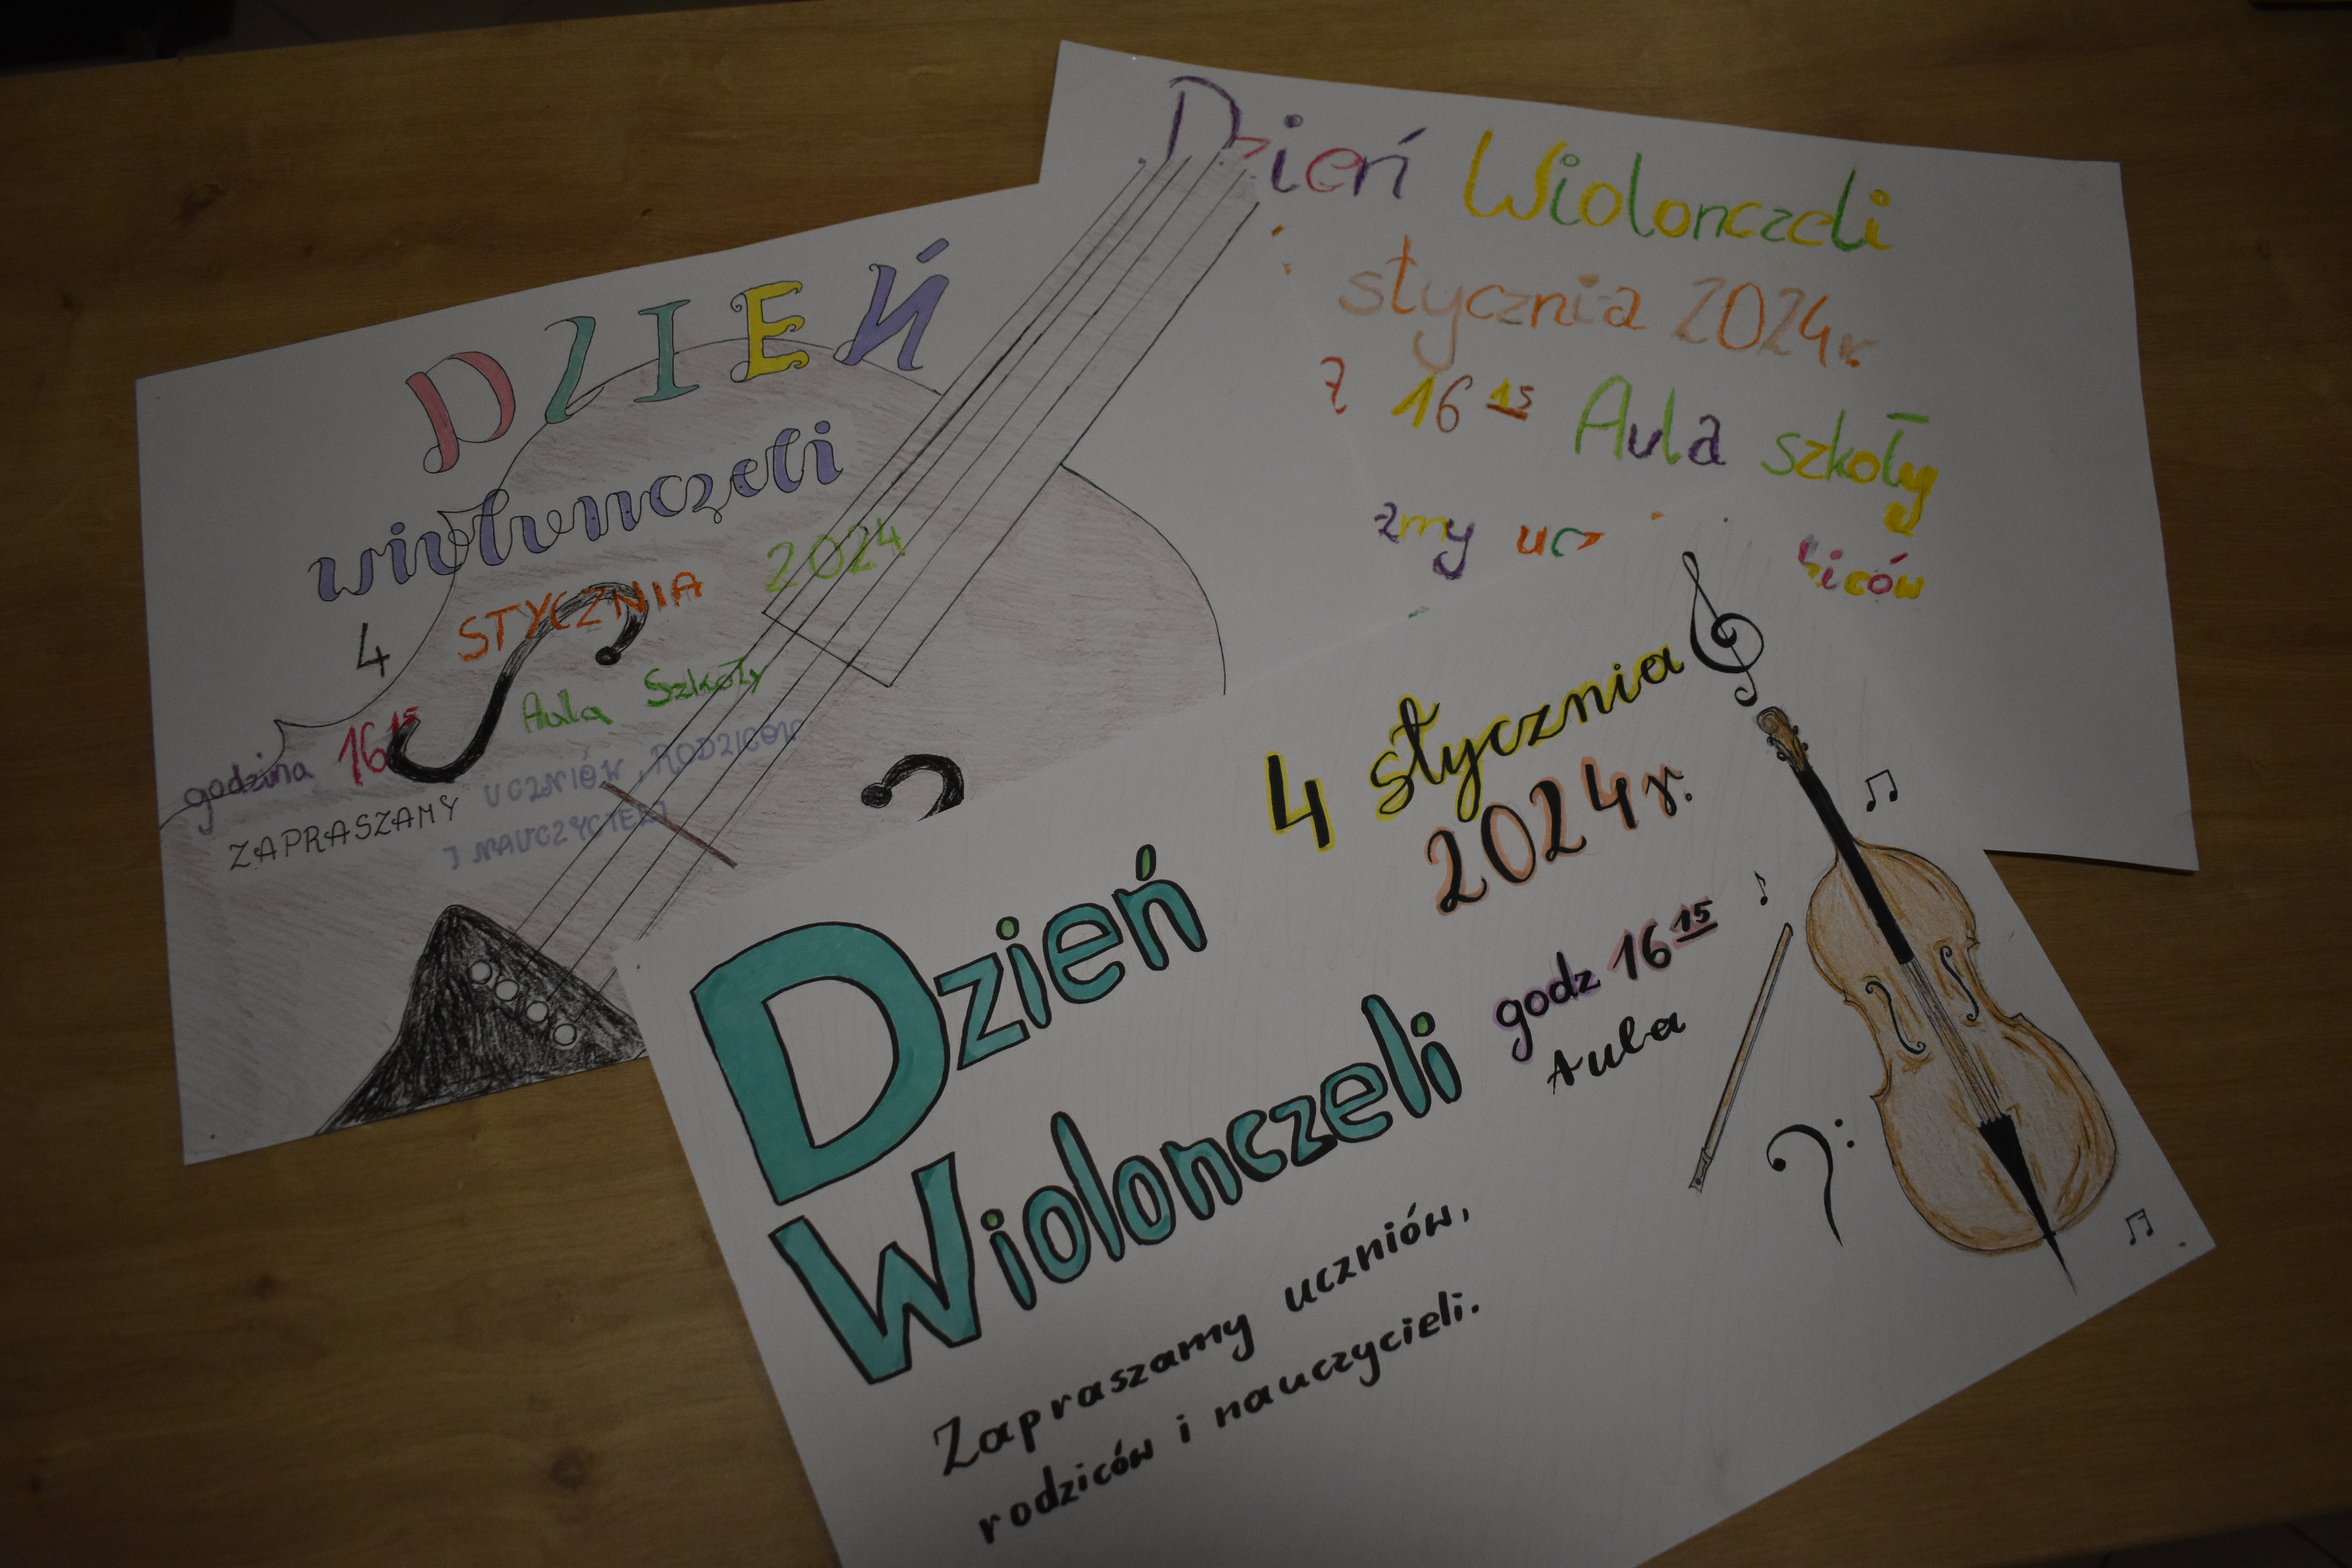 DZIEŃ
wiolonczeli
4 STYCZNIA 2024
godzina 16 15 Aula Szkoły
ZAPRASZAMY UCZNIÓW, RODZICÓW
I NAUCZYCIELI
Dzień Wiolonczeli
stycznia 2024r.
16 15 Aula szkoły
4 stycznia
2024r.
Dzień
Wiolonczeli
godz 16 15
Aula
Zapraszamy uczniów,
rodziców i nauczycieli.